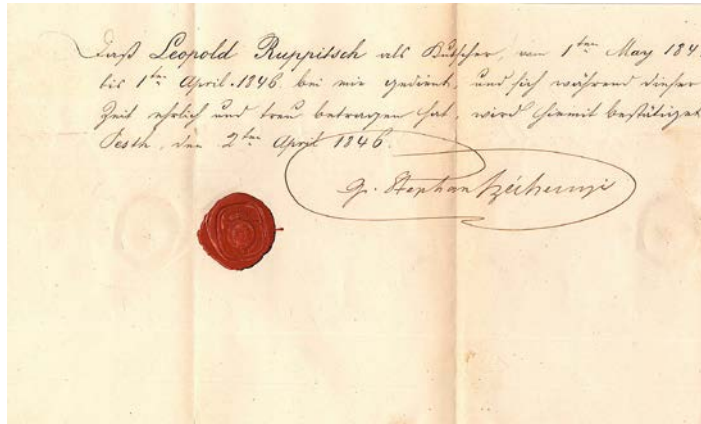 Daß Leopold Ruppitsch als Kutscher, vom 1ten May 184
bis 1ten April 1846. bei mir gedient, und sich während dieser
Zeit ehrlich und treu betragen hat, wird hiemit bestätiget.
Pesth, den 2ten April 1846.
Gr. Stephan Széchenyi